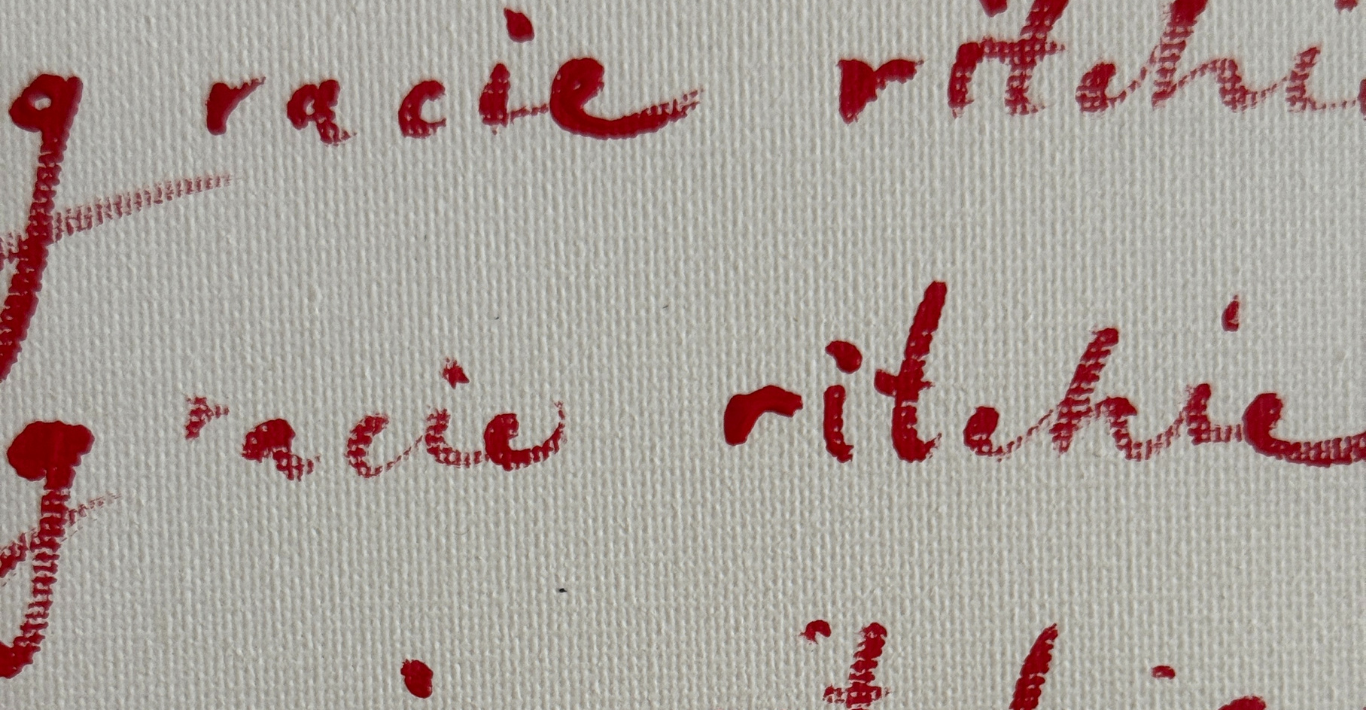 gracie ritchi
gracie ritchie